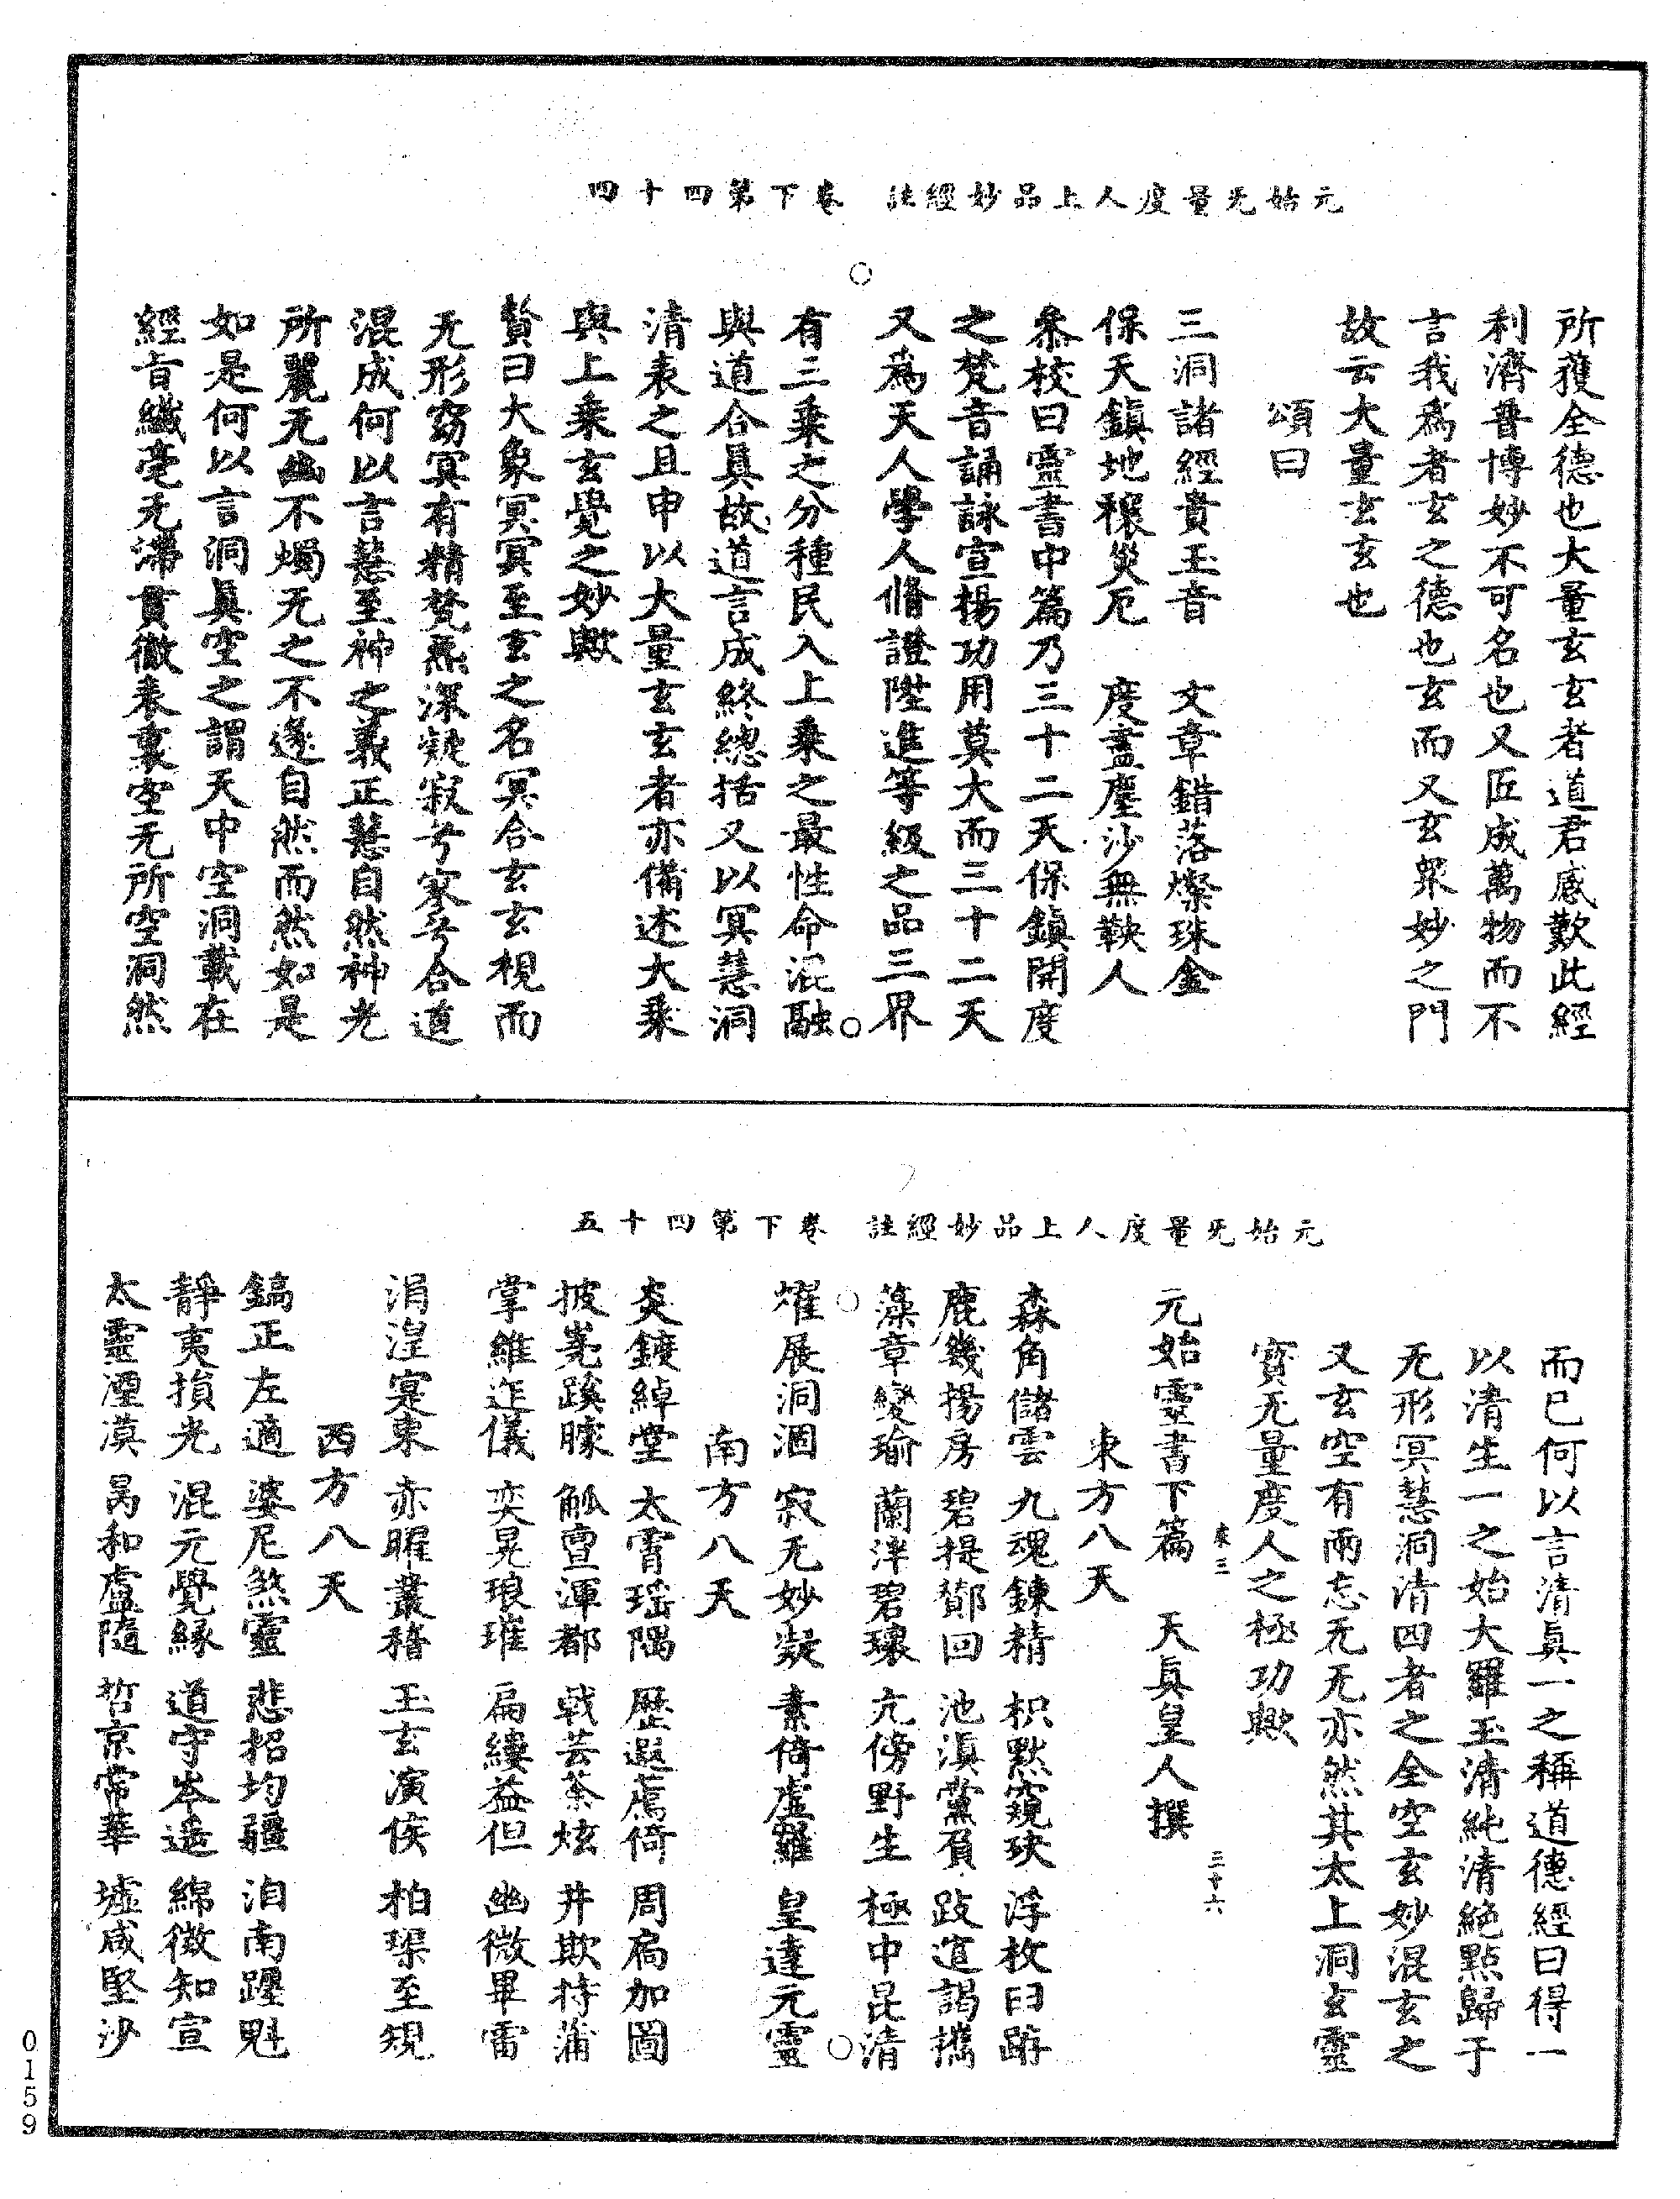 元始无量度人上品妙經註 卷下第四十四
所獲全德也大量玄玄者道君感歎此經
利濟普博妙不可名也又匠成萬物而不
言我爲者玄之德也玄而又玄衆妙之門
故云大量玄玄也
頌曰
三洞諸經貴玉音 文章錯落燦珠金
保天鎮地禳災厄 度盡塵沙無鞅人
叅校曰靈書中篇乃三十二天保鎮開度
之梵音誦詠宣揚功用莫大而三十二天
又爲天人學人脩證陞進等級之品三界
有三乗之分種民入上乗之最性命混融
與道合真故道言成終總括又以冥慧洞
清表之且申以大量玄玄者亦備述大乗
與上乗玄覺之妙歟
贊曰大象冥冥至玄之名冥合玄玄視而
无形窈冥有精梵炁深凝寂兮寥兮合道
混成何以言慧至神之義正慧自然神光
所麗无幽不燭无之不遂自然而然如是
如是何以言洞眞空之謂天中空洞載在
經旨纖毫无滯貫徹表裏空无所空洞然
元始无量度人上品妙經註 卷下第四十五
而已何以言清眞一之稱道德經曰得一
以清生一之始大羅玉清純清絶點歸于
无形冥慧洞清四者之全空玄妙混玄之
又玄空有兩忘无无亦然其太上洞玄靈
寳无量度人之極功歟
來三 三十六
元始靈書下篇 天眞皇人撰
東方八天
森角儲雲 九魂鍊精 枳黙窺玦 浮枚臼跡
鹿幾揚房 碧提鄭回 池滇黨負 跂道謁攜
藻章變瑜 蘭津碧瓌 亢傍野生 極中昆清
燿展洞涸 寂无妙凝 素倚虛羅 皇達元靈
南方八天
炎鑣綽堂 太霄瑶隅 歷遐薦倚 周扃加圖
披嵬蹊矇 觚亶渾都 戟芸荼炫 井欺持蒲
掌維迮儀 奕晃琅璀 扁縷益但 幽微畢雷
涓湟寔東 亦暒叢稽 玉玄演俟 柏璖至䂓
西方八天
鎬正左適 婆尼煞靈 悲招均疆 洎南躔魁
靜夷損光 混元覺縁 道守岑遥 綿徵知宣
太靈湮漠 曷和盧隨 哲京常華 墟咸堅沙
0159